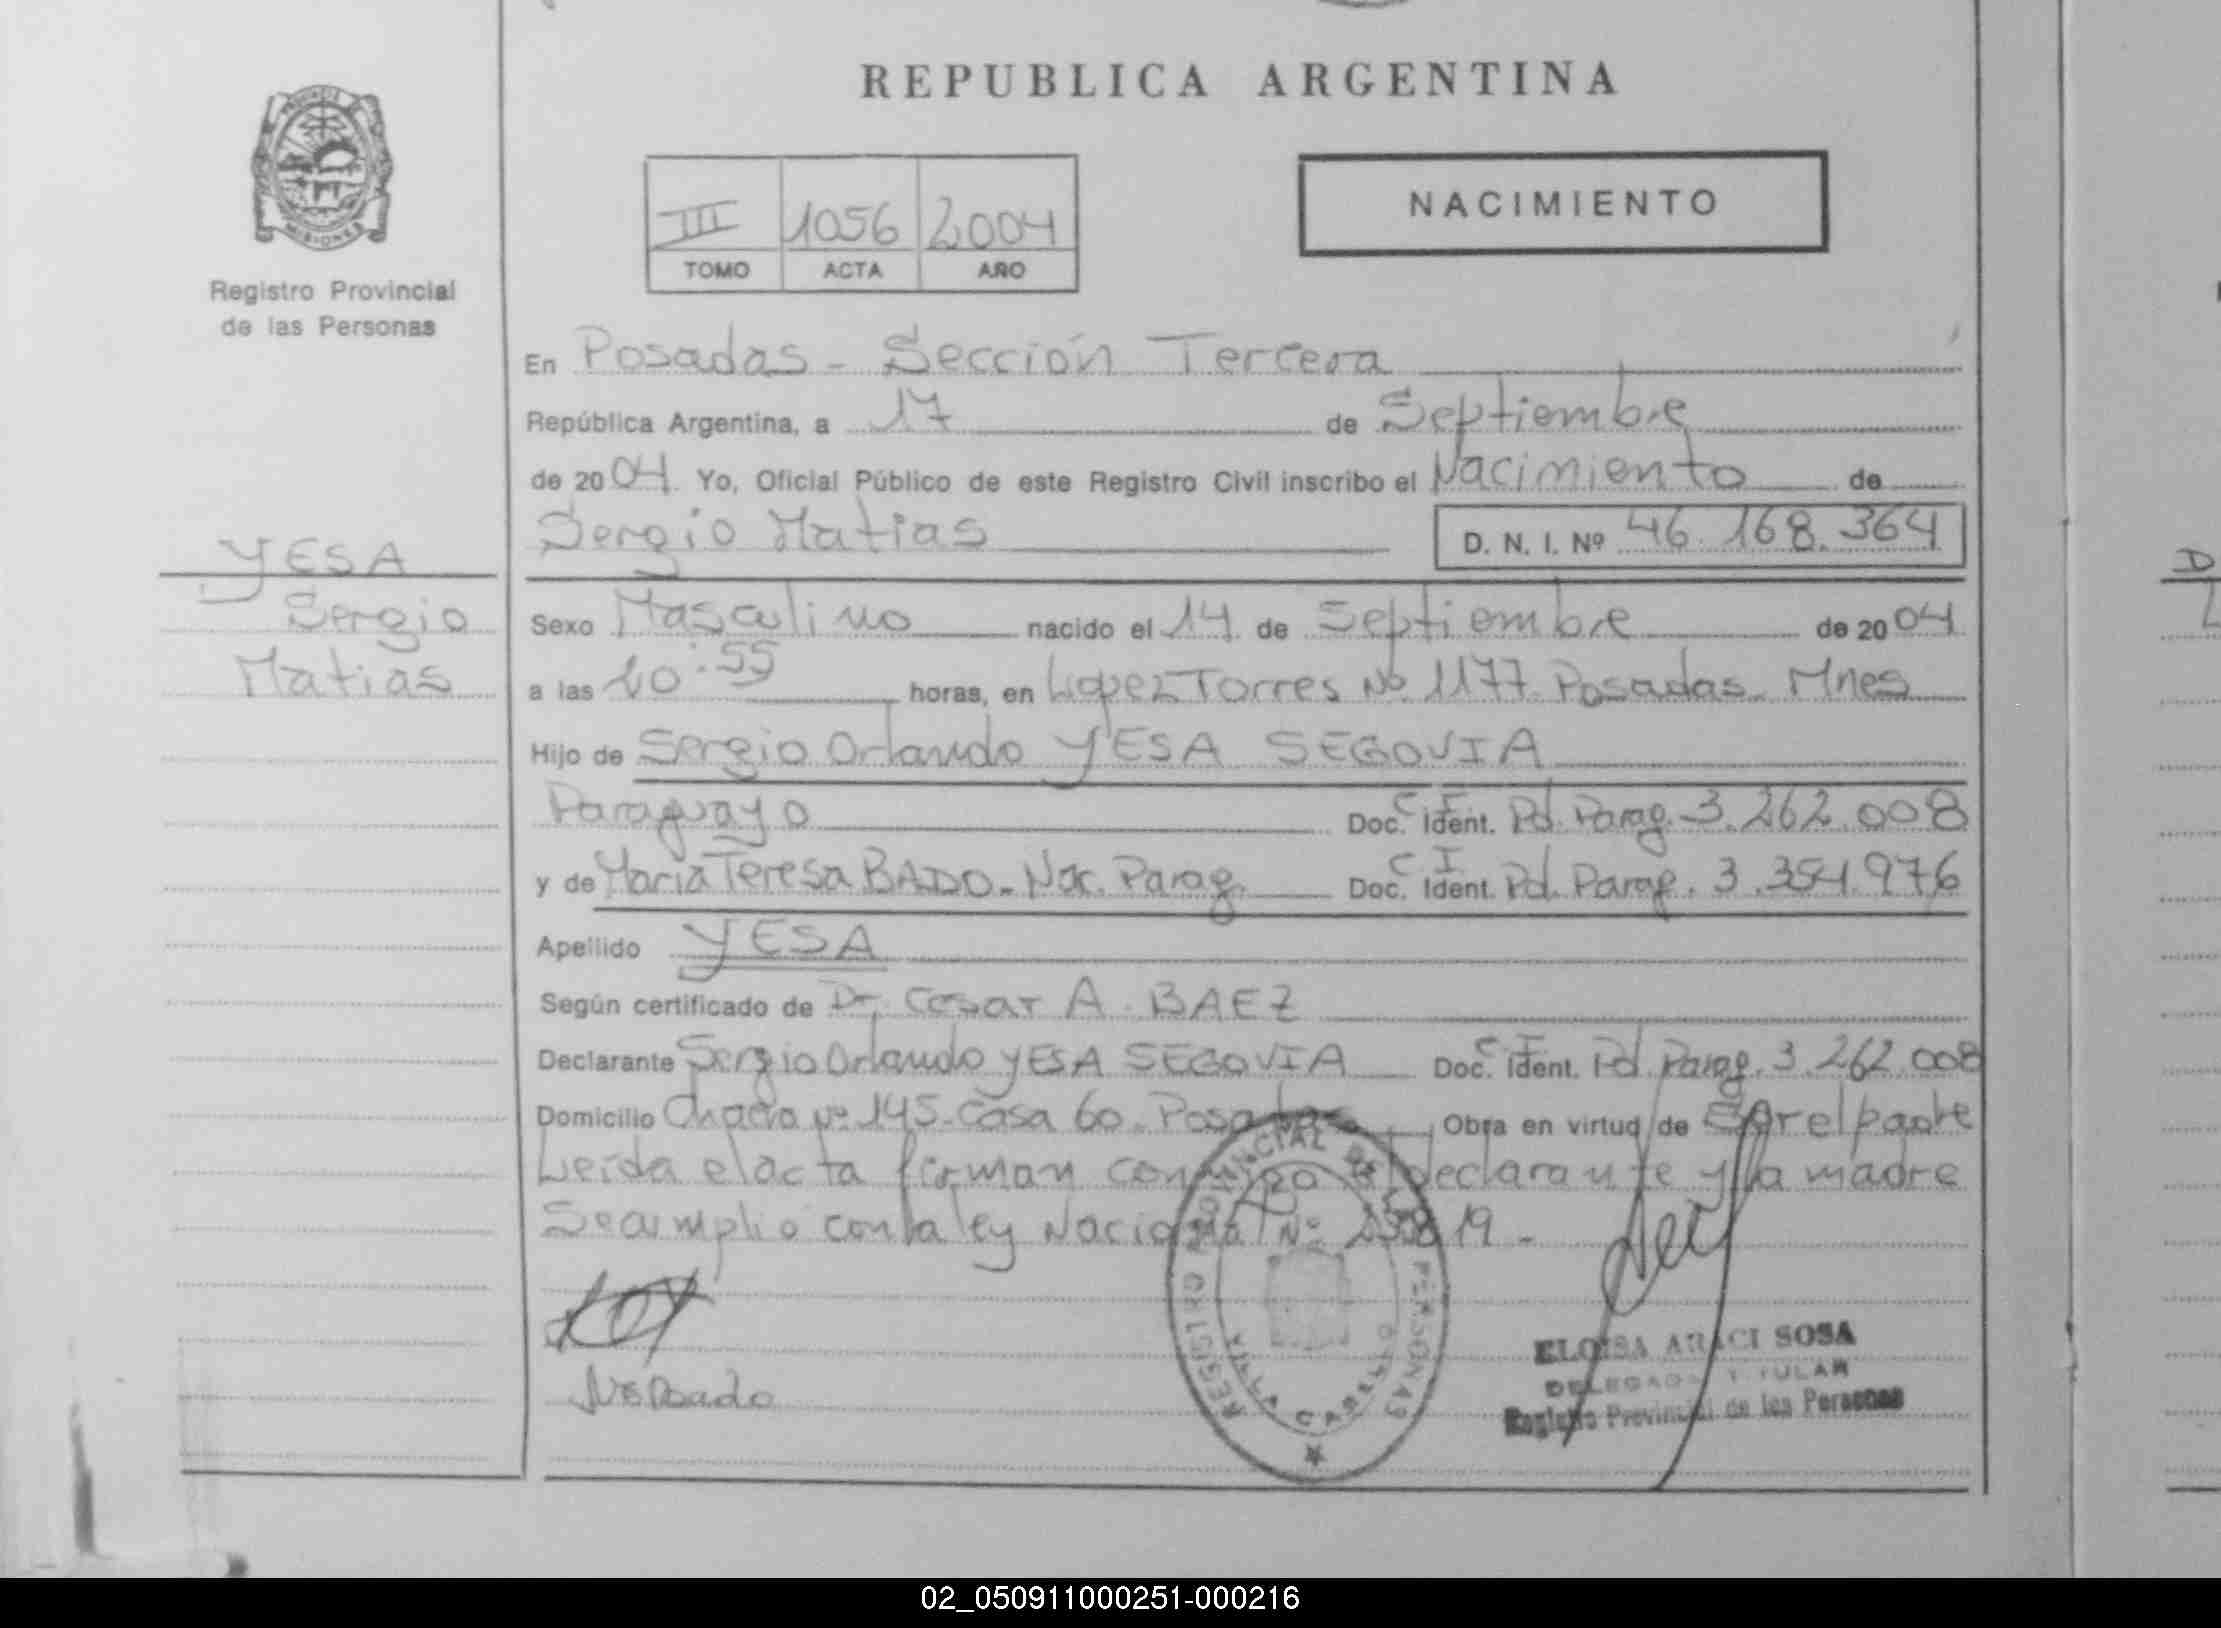 REPUBLICA ARGENTINA
NACIMIENTO
III 1056 2004
TOMO ACTA AÑO
MISIONES
Registro Provincial
de las Personas
En Posadas - Sección Tercera
República Argentina, a 17 de Septiembre
de 2004. Yo, Oficial Público de este Registro Civil inscribo el Nacimiento de
Sergio Matias D. N. I. Nº 46.168.364
YESA
Sergio
Matias
Sexo Masculino nacido el 14 de Septiembre de 2004
a las 10:55 horas, en Lopez Torres No 1177 Posadas Mnes
Hijo de Sergio Orlando YESA SEGOVIA
Paraguayo Doc. C. I. Ident. Pd. Parag. 3.262.008
y de Maria Teresa BADO - Nac. Parag. Doc. C I Ident. Pd. Parag. 3.354.976
Apellido YESA
Según certificado de Dr. Cesar A. BAEZ
Declarante Sergio Orlando YESA SEGOVIA Doc. C I Ident. Pd. Parag. 3.262.008
Domicilio Chacra Nº 145 - Casa 60 - Posadas Obra en virtud de Ser el padre
Leída el acta firman conmigo el declarante y la madre
Se cumplio con la ley Nacional Nº
REGISTRO PROVINCIAL DE LAS PERSONAS
ELOISA ARACI SOSA
DELEGADA TITULAR
Registro Provincial de las Personas
02_050911000251-000216